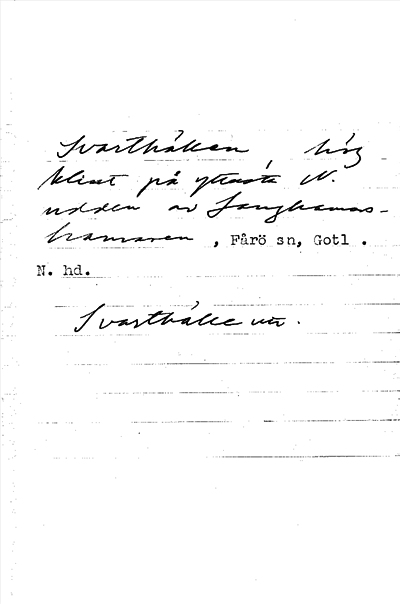 Svarthällen hög
klint på yttersta N.
udden av Langhammars-
hammaren , Fårö sn, Gotl .
N. hd.
Svarthälle